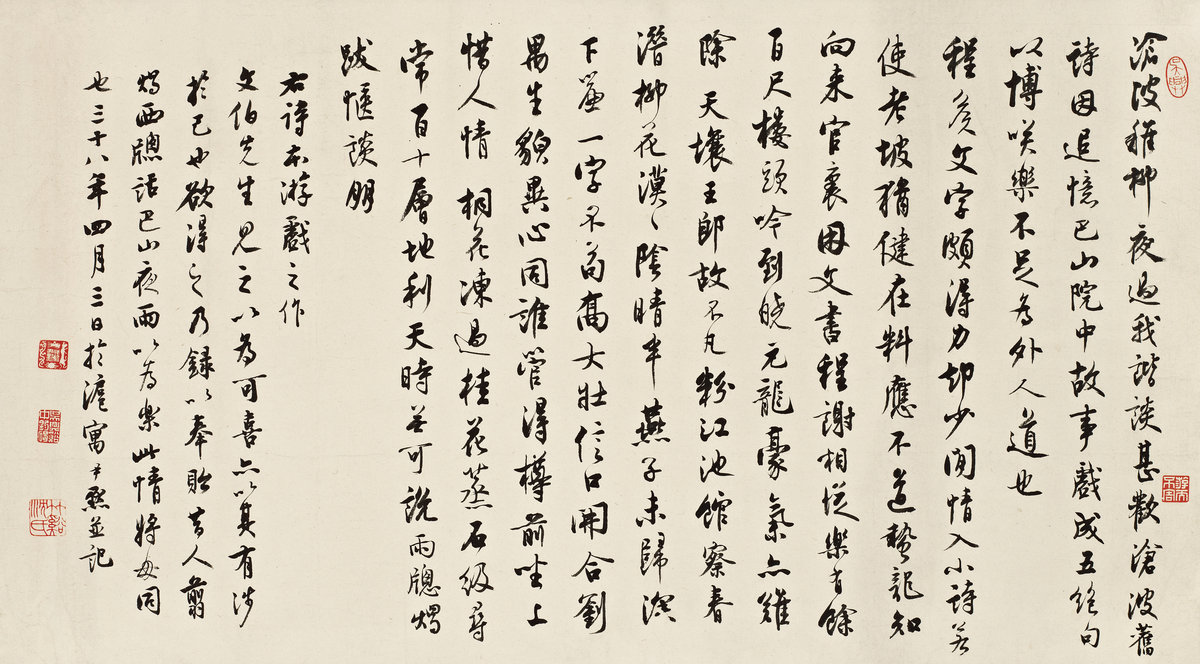 滄波穉柳夜過我諧談甚歡滄波舊
詩因追憶巴山院中故事戲成五絕句
以博咲樂不足為外人道也
程侯文字頗得力却少閒情入小詩若
使老坡猶健在料應不道蟄龍知
向来官裏困文書程謝相從樂有餘
百尺樓頭吟到曉元龍豪氣亦難
除 天壤王郎故不凡粉江池館察春
潛柳花漠〻陰晴半燕子未歸深
下簾 一字不苟高大壯信口開合劉
禺生貌異心同誰管得樽前坐上
惜人情 桐花凍過桂花蒸石級尋
常百十層地利天時無可說雨牕燭
跋愜談朋
右詩本游戲之作
文伯先生見之以為可喜亦以其有涉
於己也欲得之乃錄以奉貽昔人翦
燭西牕話巴山夜雨以為樂此情將毋同
也三十八年四月三日於滬寓尹默並記
竹谿沈氏